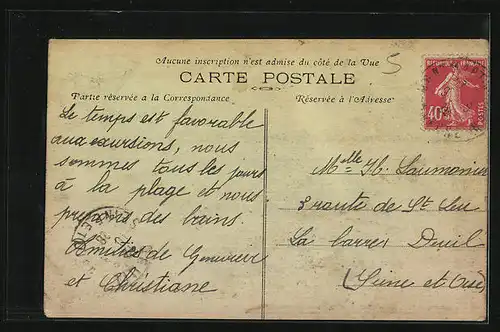 Aucune inscription n'est admise du côté de la Vue
CARTE POSTALE
Partie réservée a la Correspondance
Réservée à l'Adresse
5
40c
POSTES
Le temps est favorable
aux excursions, nous
sommes tous les jours
à la plage et nous
prenons des bains.
Amitiés de Geneviève
et Christiane
Melle H. Saumonier
route de St Leu
La barre Deuil
(Seine et Oise)